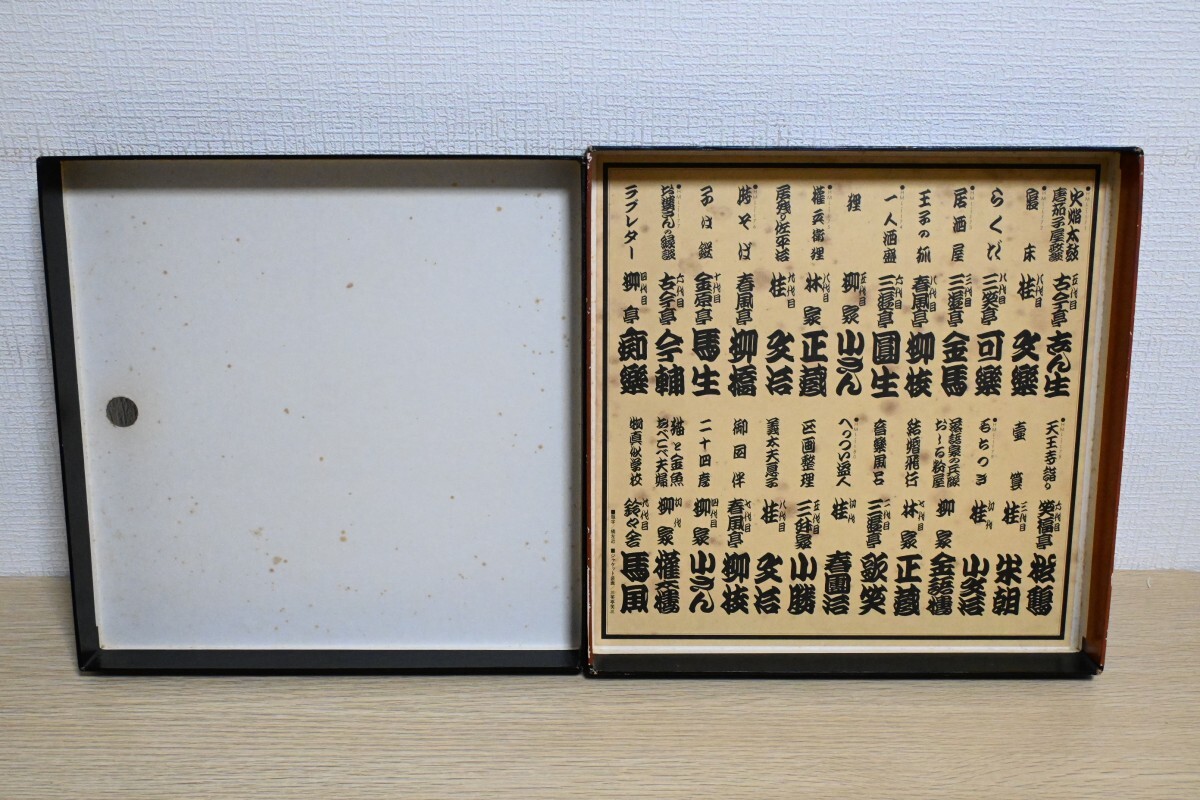 火焔太鼓
唐茄子屋政談
五代目
古今亭
志ん生
寝床
八代目
桂
文樂
らくだ
八代目
三笑亭
可樂
居酒屋
三代目
三遊亭
金馬
王子の狐
八代目
春風亭
柳枝
一人酒盛
六代目
三遊亭
圓生
狸
五代目
柳家
小さん
権兵衛狸
八代目
林家
正蔵
居残り佐平治
九代目
桂
文治
時そば
春風亭
柳橋
子は鎹
十代目
金原亭
馬生
お婆さんの縁談
六代目
古今亭
今輔
ラブレター
四代目
柳亭
痴樂
天王寺詣り
六代目
笑福亭
松鶴
壷算
三代目
桂
米朝
もちつき
四代
桂
小文治
落語家の兵隊
おしる粉屋
柳家
金語樓
結婚飛行
七代目
林家
正蔵
音樂風呂
二代目
三遊亭
歌笑
へっつい盗人
桂
春團治
区画整理
五代目
三升家
小勝
義太夫息子
八代目
桂
文治
御国伴
七代目
春風亭
柳枝
二十四孝
四代目
柳家
小さん
猫と金魚
あべこべ夫婦
初代
柳家
権太樓
物真似学校
九代目
鈴々舎
馬風